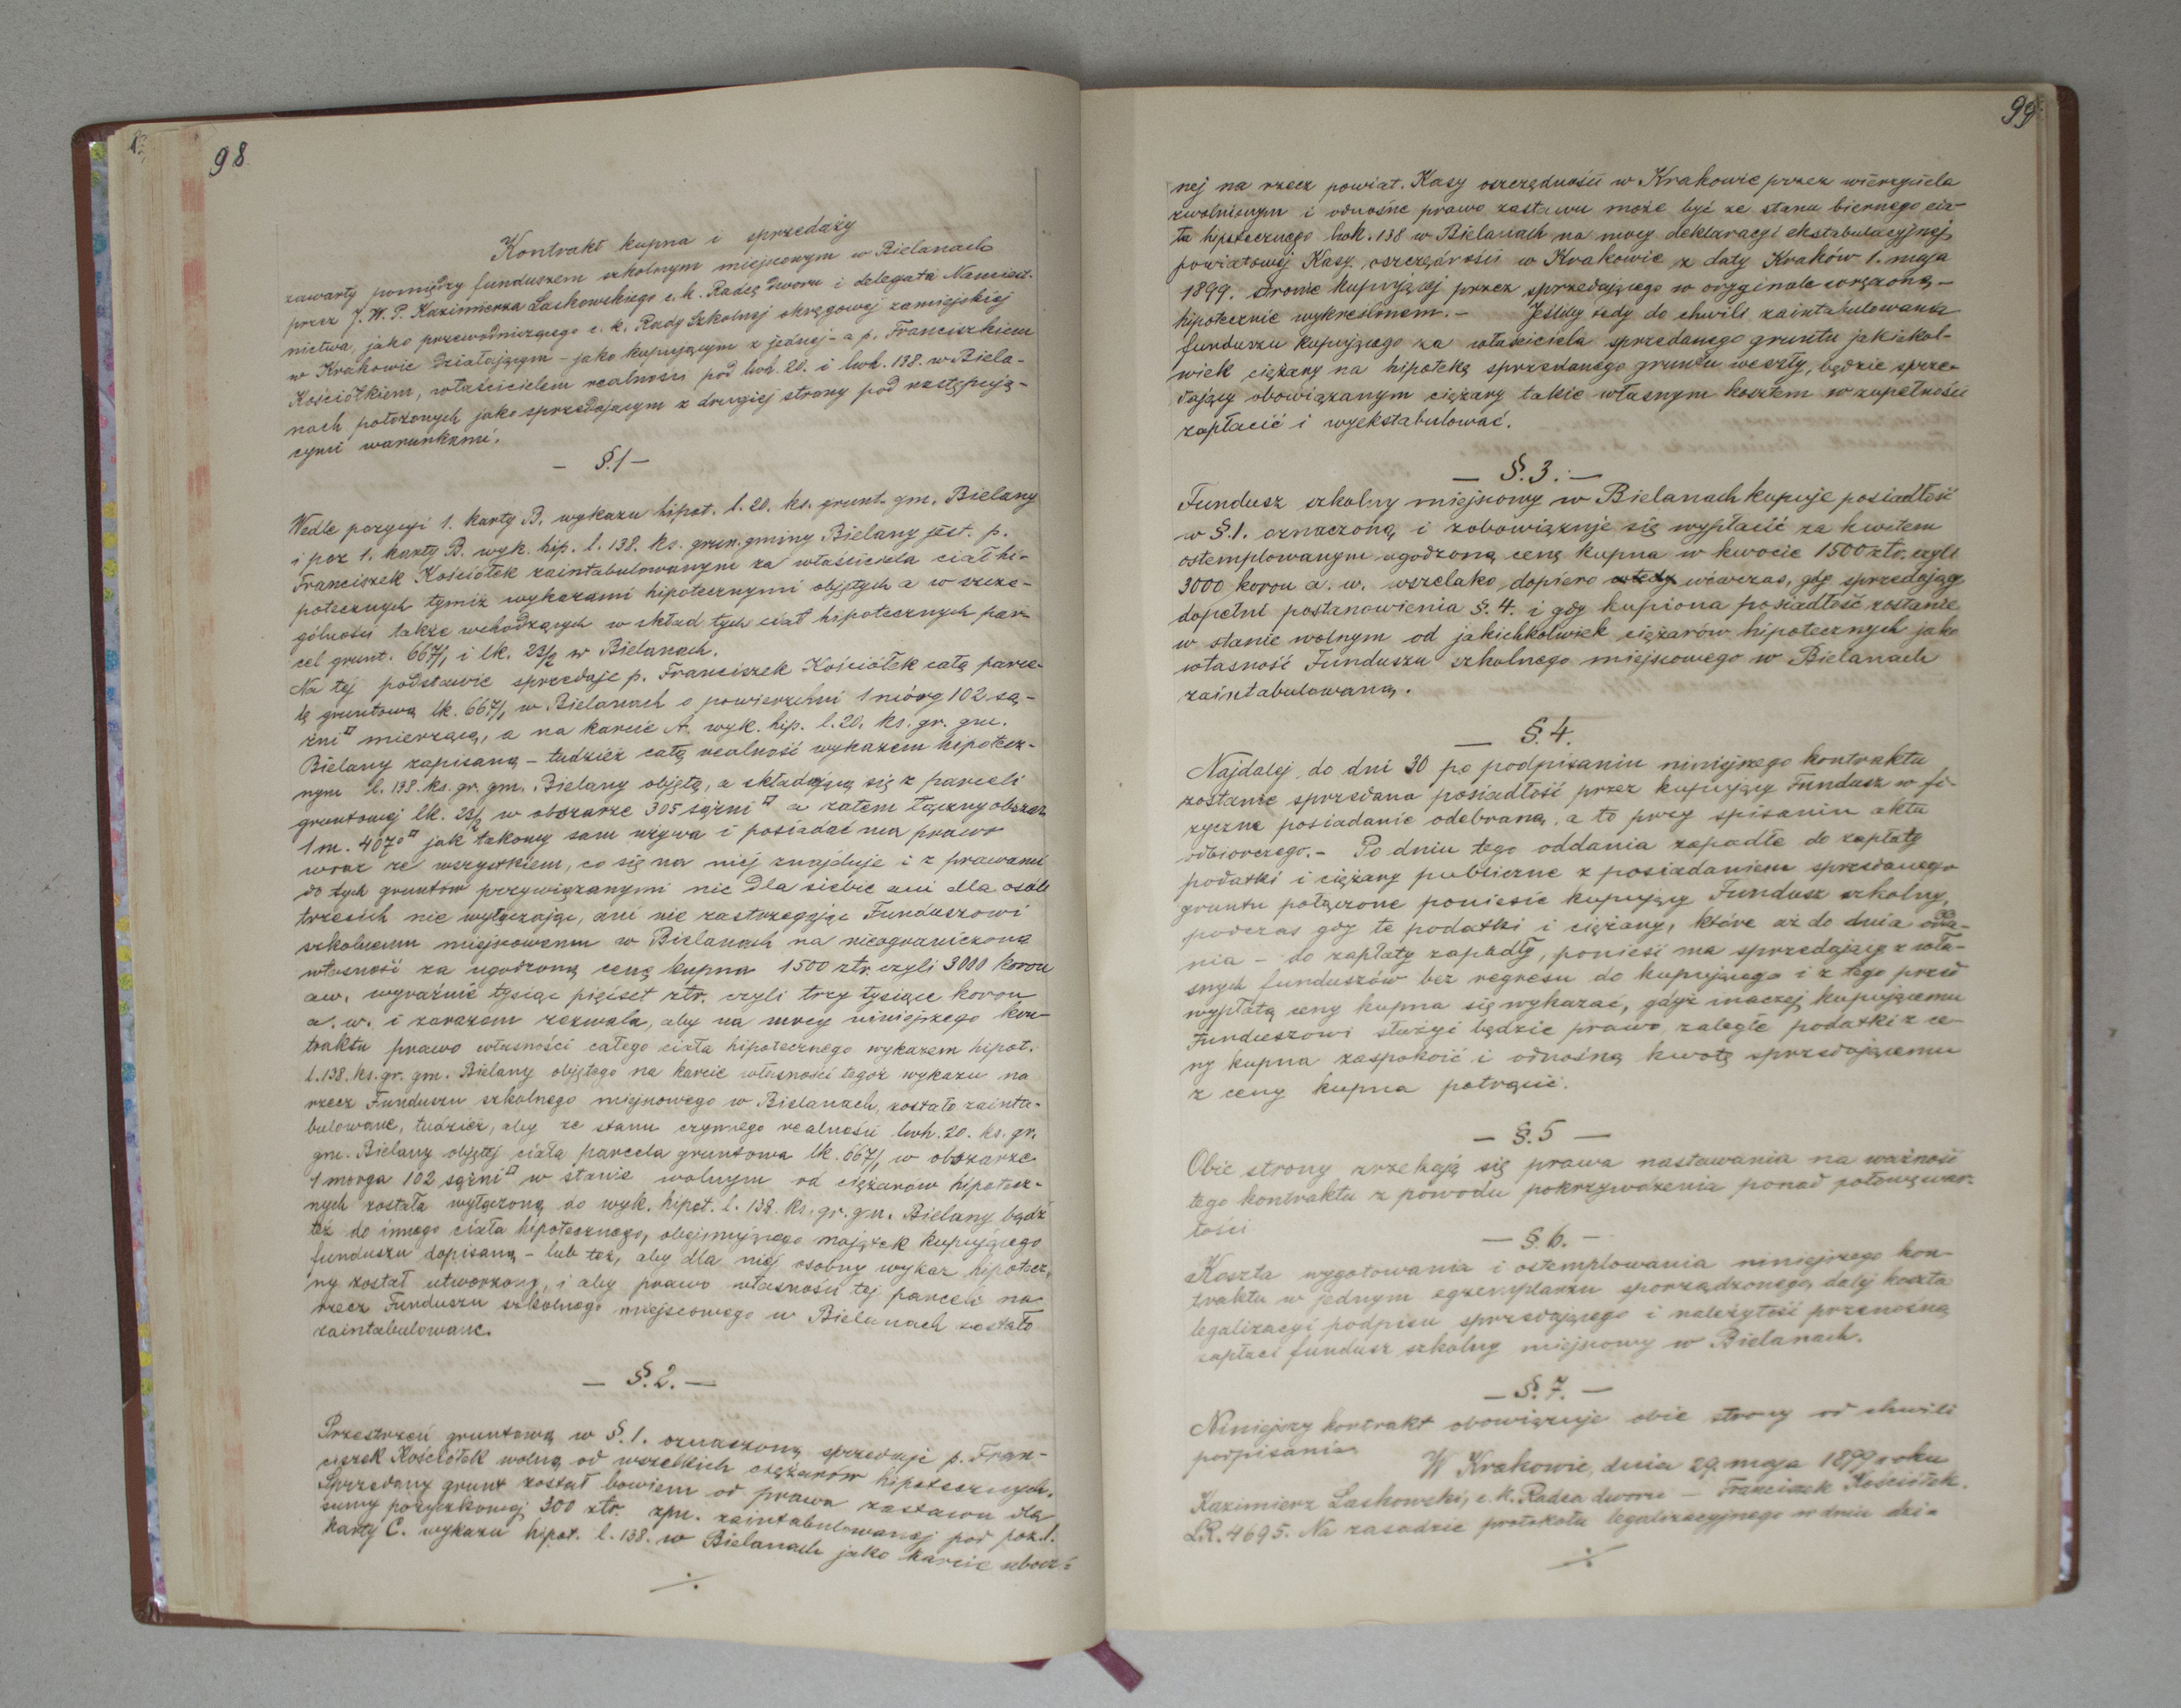 98
Kontrakt kupna i sprzedaży
zawarty pomiędzy funduszem szkolnym miejscowym w Bielanach
przez J. W. P. Kazimierza Laskowskiego c. k. Radcę Dworu i delegata Namiest-
nictwa, jako przewodniczącego c. k. Rady Szkolnej okręgowej zamiejskiej
w Krakowie działającym – jako kupującym z jednej – a p. Franciszkiem
Kościółkiem, właścicielem realności pod lwh. 20. i lwh. 138. w Biela-
nach położonych jako sprzedającym z drugiej strony pod następują-
cymi warunkami.
– §.1 –
Wedle pozycyi 1. karty B. wykazu hipot. l. 20. ks. grunt. gm. Bielany
i poz 1. karty B. wyk. hip. l. 138. ks. grun. gminy Bielany jest. p.
Franciszek Kościółek zaintabulowanym za właściciela ciał hi-
potecznych tymiż wykazami hipotecznymi objętych a w szcze-
gólności także wchodzących w skład tych ciał hipotecznych par-
cel grunt. 667/1 i lk. 23/2 w Bielanach.
Na tej podstawie sprzedaje p. Franciszek Kościółek całą parce-
lę gruntową lk. 667/1 w Bielanach o powierzchni 1 mórg 102 są-
żni□ mierzącą, a na karcie A. wyk. hip. l. 20. ks. gr. gm.
Bielany zapisaną – tudzież całą realność wykazem hipotecz-
nym l. 138. ks. gr. gm. Bielany objętą, a składającą się z parceli
gruntowej lk. 23/2 w obszarze 305 sążni□ a zatem łączny obszar
1 m. 407□ jak takowy sam używa i posiadać ma prawo
wraz ze wszystkiem, co się na niej znajduje i z prawami
do tych gruntów przywiązanymi nic dla siebie ani dla osób
trzecich nie wyłączając, ani nie zastrzegając Funduszowi
szkolnemu miejscowemu w Bielanach na nieograniczoną
własność za ugodzoną cenę kupna 1500 złr. czyli 3000 koron
aw. wyraźnie tysiąc pięćset złr. czyli trzy tysiące koron
a. w. i zarazem zezwala, aby na mocy niniejszego kon-
traktu prawo własności całego ciała hipotecznego wykazem hipot.
l. 138. ks. gr. gm. Bielany objętego na karcie własności tegoż wykazu na
rzecz Funduszu szkolnego miejscowego w Bielanach, zostało zainta-
bulowane, tudzież, aby ze stanu czynnego realności lwh. 20. ks. gr.
gm. Bielany objętej ciała parcela gruntowa lk. 667/1 w obszarze
1 morga 102 sążni□ w stanie wolnym od ciężarów hipotecz-
nych została wyłączoną do wyk. hipot. l. 138. ks. gr. gm. Bielany bądź
też do innego ciała hipotecznego, obejmującego majątek kupującego
funduszu dopisaną – lub też, aby dla niej osobny wykaz hipotecz-
ny został utworzony, i aby prawo własności tej parceli na
rzecz Funduszu szkolnego miejscowego w Bielanach zostało
zaintabulowane.
– §.2. –
Przestrzeń gruntową w §.1. oznaczoną sprzedaje p. Fran-
ciszek Kościółek wolną od wszelkich ciężarów hipotecznych.
Sprzedany grunt został bowiem od prawa zastawu dla
sumy pożyczkowej 300 złr. zpn. zaintabulowanej pod poz. 1.
karty C. wykazu hipot. l. 138. w Bielanach jako karcie ubocz-
99
nej na rzecz powiat. Kasy oszczędności w Krakowie przez wierzyciela
zwolnionym i odnośne prawo zastawu może być ze stanu biernego cia-
ła hipotecznego lwh. 138 w Bielanach na mocy deklaracyi ekstabulacyjnej
powiatowej Kasy oszczędności w Krakowie z daty Kraków 1. maja
1899. stronie kupującej przez sprzedającego w oryginale wręczoną –
hipotecznie wykreślonem. – Jeśliby tedy do chwili zaintabulowania
funduszu kupującego za właściciela sprzedanego gruntu jakiekol-
wiek ciężary na hipotekę sprzedanego gruntu weszły, będzie sprze-
dający obowiązanym ciężary takie własnym kosztem w zupełności
zapłacić i wyekstabulować.
– §.3. –
Fundusz szkolny miejscowy w Bielanach kupuje posiadłość
w §.1. oznaczoną i zobowiązuje się wypłacić za kwitem
ostemplowanym ugodzoną cenę kupna w kwocie 1500 złr. czyli
3000 koron a. w. wszelako dopiero wtedy wówczas, gdy sprzedający
dopełni postanowienia §. 4. i gdy kupiona posiadłość zostanie
w stanie wolnym od jakichkolwiek ciężarów hipotecznych jako
własność Funduszu szkolnego miejscowego w Bielanach
zaintabulowaną.
– §.4.
Najdalej do dni 30 po podpisaniu niniejszego kontraktu
zostanie sprzedana posiadłość przez kupujący Fundusz w fi-
zyczne posiadanie odebraną, a to przy spisaniu aktu
odbiorczego. – Po dniu tego oddania zapadłe do zapłaty
podatki i ciężary publiczne z posiadaniem sprzedanego
gruntu połączone poniesie kupujący Fundusz szkolny,
podczas gdy te podatki i ciężary, które aż do dnia odda-
nia – do zapłaty zapadły, ponieść ma sprzedający z wła-
snych funduszów bez regresu do kupującego i z tego przed
wypłatą ceny kupna się wykazać, gdyż inaczej kupującemu
Funduszowi służyć będzie prawo, zaległe podatki z ce-
ny kupna zaspokoić i odnośną kwotę sprzedającemu
z ceny kupna potrącić.
– §.5 –
Obie strony zrzekają się prawa nastawania na ważność
tego kontraktu z powodu pokrzywdzenia ponad połowę war-
tości
– §.6. –
Koszta wygotowania i ostemplowania niniejszego kon-
traktu w jednym egzemplarzu sporządzonego, dalej koszta
legalizacyi podpisu sprzedającego i należytość przenośną
zapłaci fundusz szkolny miejscowy w Bielanach.
– §.7. –
Niniejszy kontrakt obowiązuje obie strony od chwili
podpisania. W Krakowie, dnia 29. maja 1899 roku
Kazimierz Laskowski, c. k. Radca dworu – Franciszek Kościółek.
LR. 4695. Na zasadzie protokołu legalizacyjnego w dniu dzi-